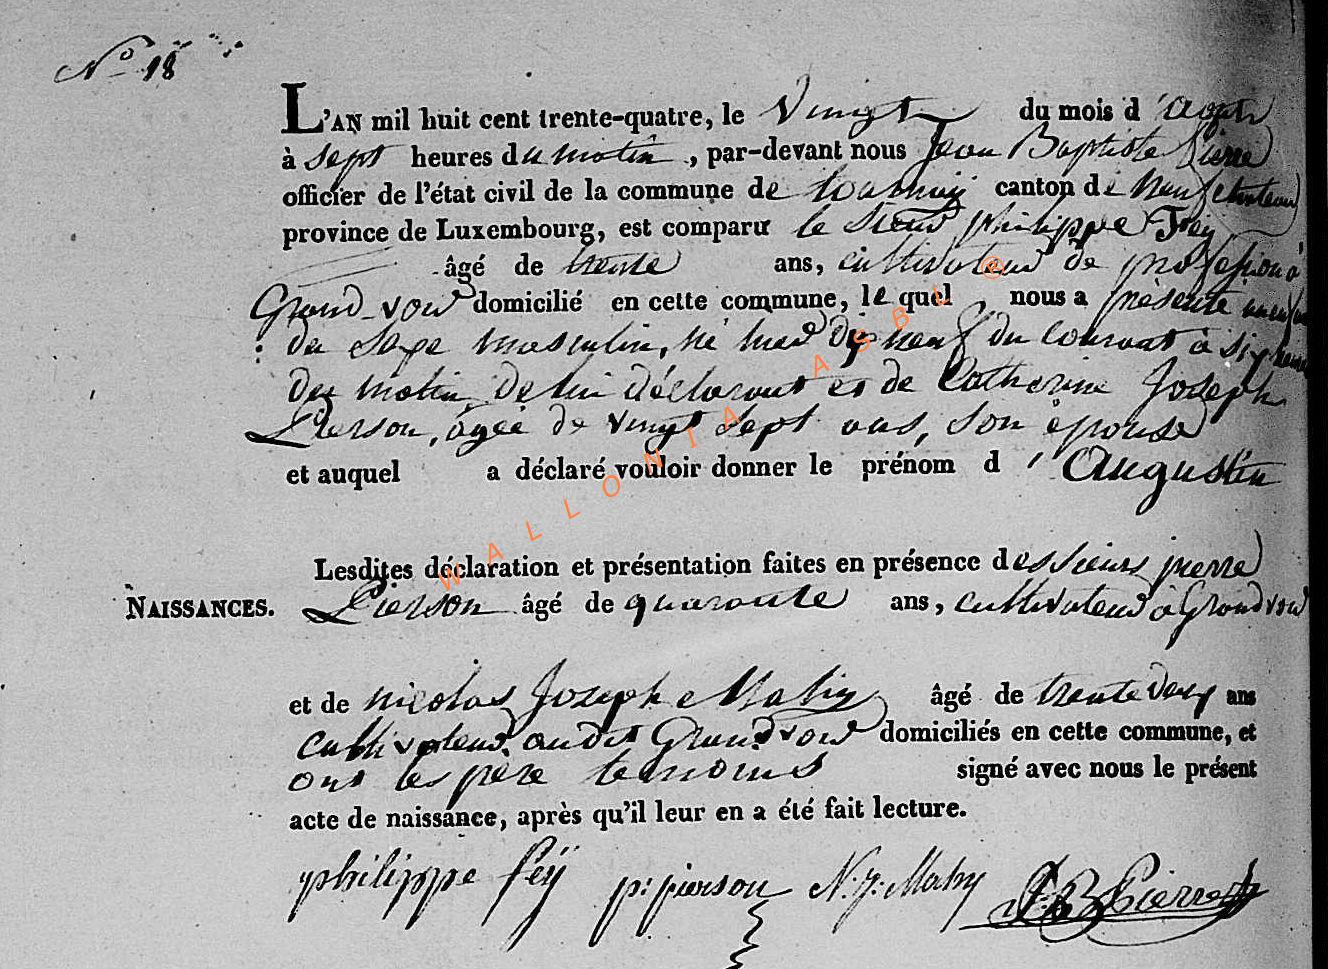 No 18
L'AN mil huit cent trente-quatre, le vingt du mois d'août
à sept heures du matin, par-devant nous Jean Baptiste Pierre
officier de l'état civil de la commune de tournay canton de neufchateau
province de Luxembourg, est comparu le sieur philippe Feÿ
âgé de trente ans, cultivateur de profession à
Grand-voir domicilié en cette commune, lequel nous a présenté un enfant
du sexe masculin, né hier dix neuf du courant à six heures
du matin de lui déclarant et de Catherine Joseph
Pierson, âgée de vingt sept ans, son épouse
et auquel a déclaré vouloir donner le prénom d'Augustin
Lesdites déclaration et présentation faites en présence des sieurs pierre
NAISSANCES. Pierson âgé de quarante ans, cultivateur à Grandvoir
et de nicolas Joseph Mahy âgé de trente deux ans
cultivateur audit Grandvoir domiciliés en cette commune, et
ont les père temoins signé avec nous le présent
acte de naissance, après qu'il leur en a été fait lecture.
philippe feÿ p: pierson N: J: Mahy J. B Pierre
WALLONIA ASBL @